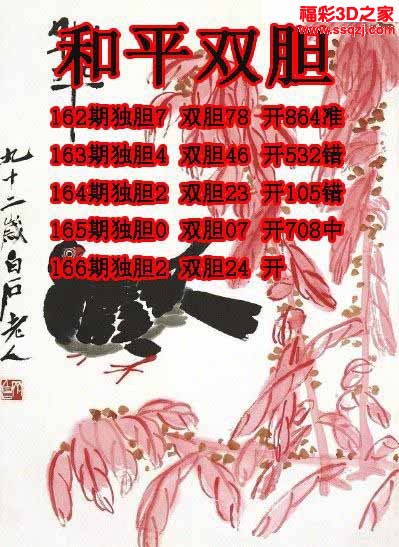 福彩3D之家
www.ssqzj.com
和平双胆
162期独胆7 双胆78 开864准
163期独胆4 双胆46 开532错
164期独胆2 双胆23 开105错
165期独胆0 双胆07 开708中
166期独胆2 双胆24 开
九十二歲白石老人